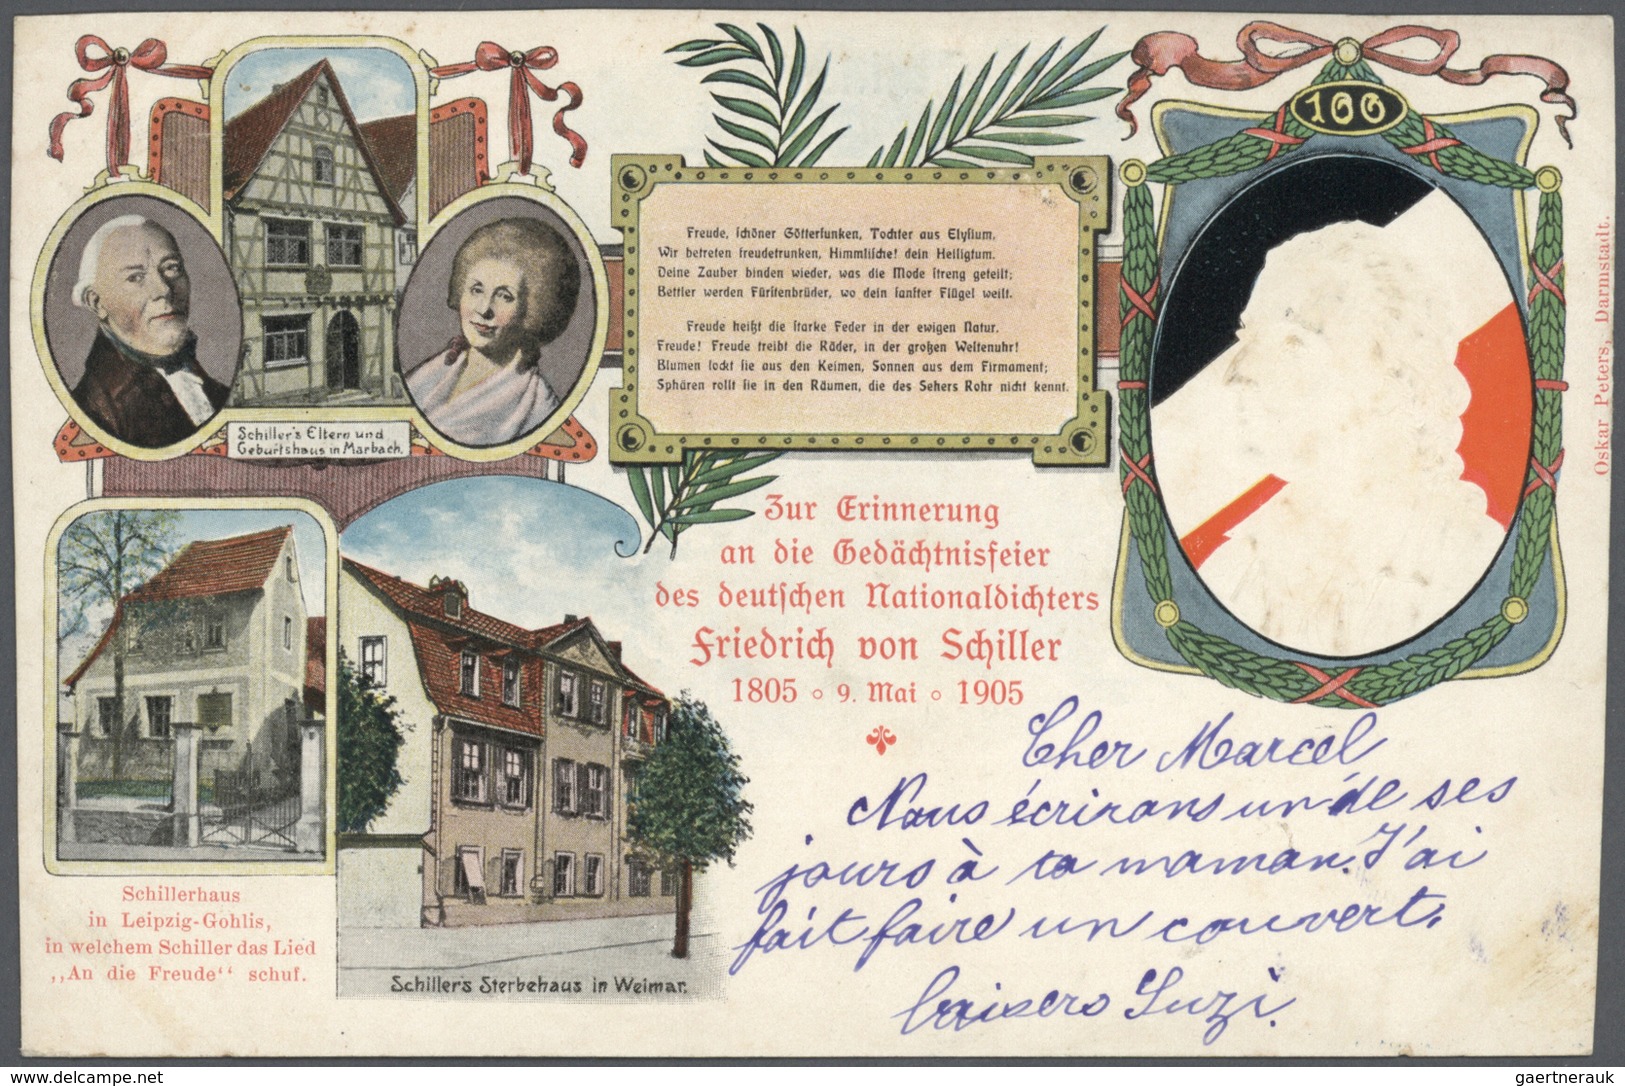 100
Freude, schöner Götterfunken, Tochter aus Elysium,
Wir betreten freudetrunken, Himmlische! dein Heiligtum.
Deine Zauber binden wieder, was die Mode streng geteilt;
Bettler werden Fürstenbrüder, wo dein sanfter Flügel weilt.
Freude heißt die starke Feder in der ewigen Natur.
Freude! Freude treibt die Räder, in der großen Weltenuhr!
Blumen lockt sie aus den Keimen, Sonnen aus dem Firmament;
Sphären rollt sie in den Räumen, die des Sehers Rohr nicht kennt.
Schiller's Eltern und
Geburtshaus in Marbach.
Oskar Peters, Darmstadt.
Zur Erinnerung
an die Gedächtnisfeier
des deutschen Nationaldichters
Friedrich von Schiller
1805 ◦ 9. Mai ◦ 1905
Schillerhaus
in Leipzig-Gohlis,
in welchem Schiller das Lied
,,An die Freude‘‘ schuf.
Schiller's Sterbehaus in Weimar.
Cher Marcel
Nous écrirons un de ses
jours à ta maman. J'ai
fait faire un couvert.
baisers Suzi.
delcampe.net
gaertnerauk